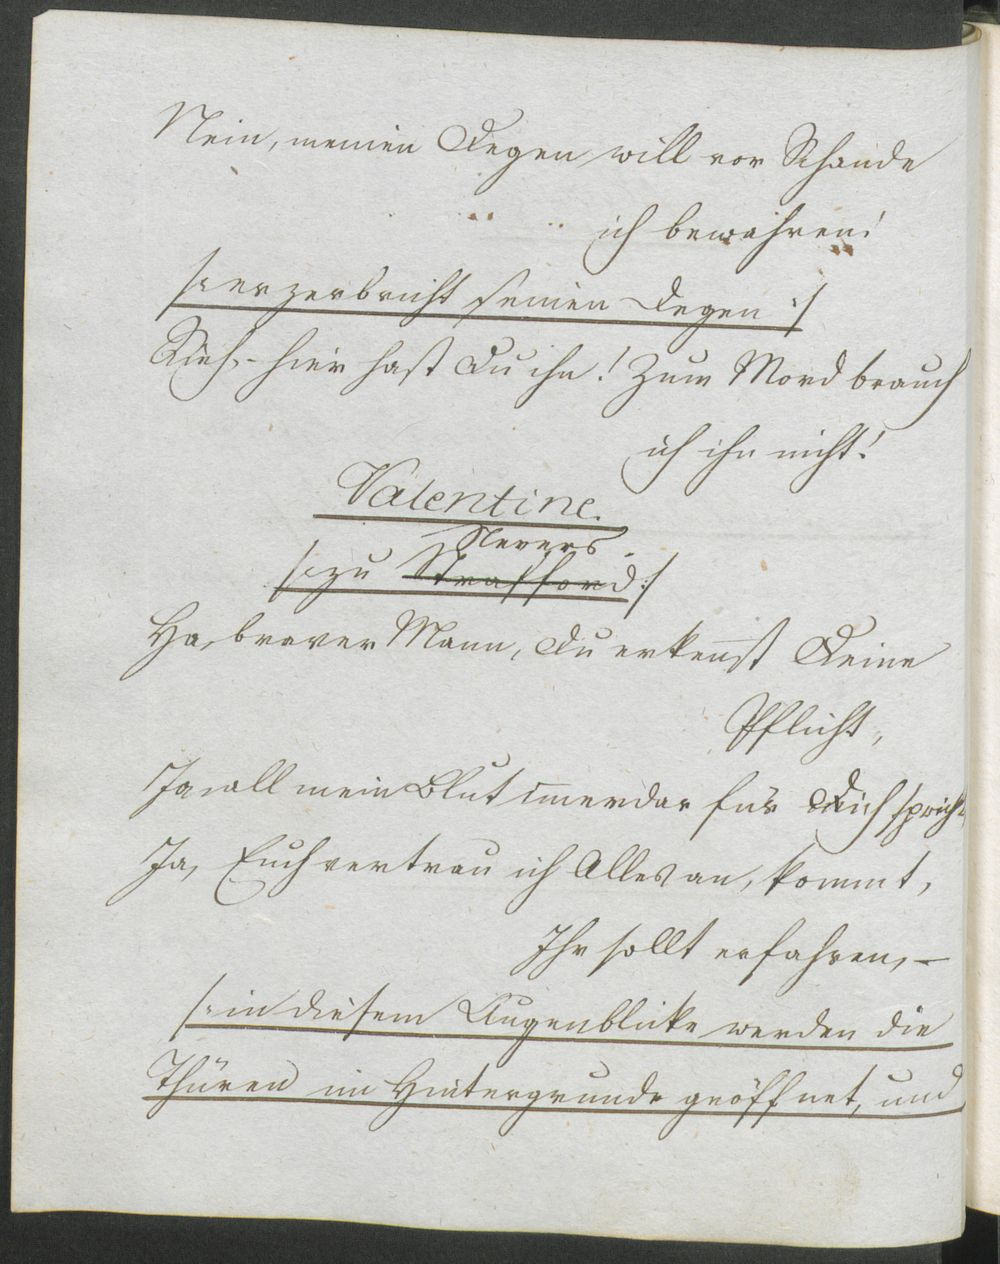 Nein, meinen Degen will vor Schande
ich bewahren!
/: er zerbricht seinen Degen :/
Sieh, hier hast Du ihn! Zum Mord brauch
ich ihn nicht!
Valentine.
Nevers.
/: zu Strafford :/
Ha, braver Mann, Du erkennst Deine
Pflicht,
Ja, all mein Blut immerdar für Dich spricht,
Ja, Euch vertrau ich Alles an, kommt,
Ihr sollt erfahren, –
/: in diesem Augenblicke werden die
Thüren im Hintergrunde geöffnet, und